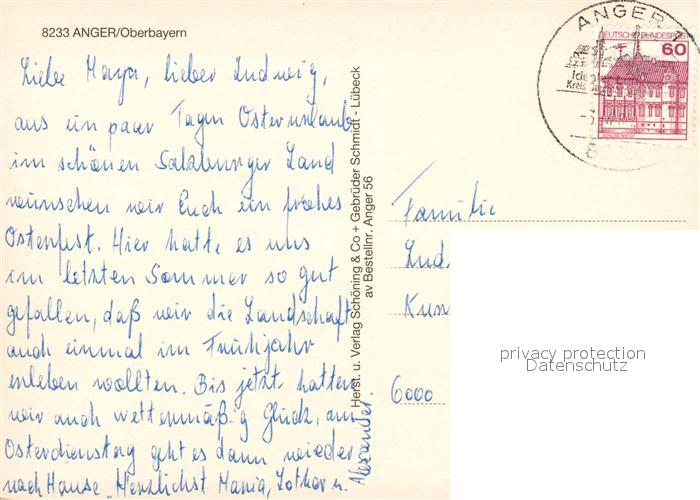 8233 ANGER/Oberbayern
Liebe Maya, lieber Ludwig,
aus ein paar Tagen Osterurlaub
im schönen Salzburger Land
wünschen wir Euch ein frohes
Osterfest. Hier hatte es uns
im letzten Sommer so gut
gefallen, daß wir die Landschaft
auch einmal im Frühjahr
erleben wollten. Bis jetzt hatten
wir auch wettermäßig Glück, am
Osterdienstag geht es dann wieder
nach Hause. Herzlichst Maria, Lothar u.
Alexander.
Herst. u. Verlag Schöning & Co + Gebrüder Schmidt - Lübeck
av Bestellnr. Anger 56
ANGER 1
DEUTSCHE BUNDESPOST
60
Kreis
8
Familie
Lud
Kus
6000
privacy protection
Datenschutz